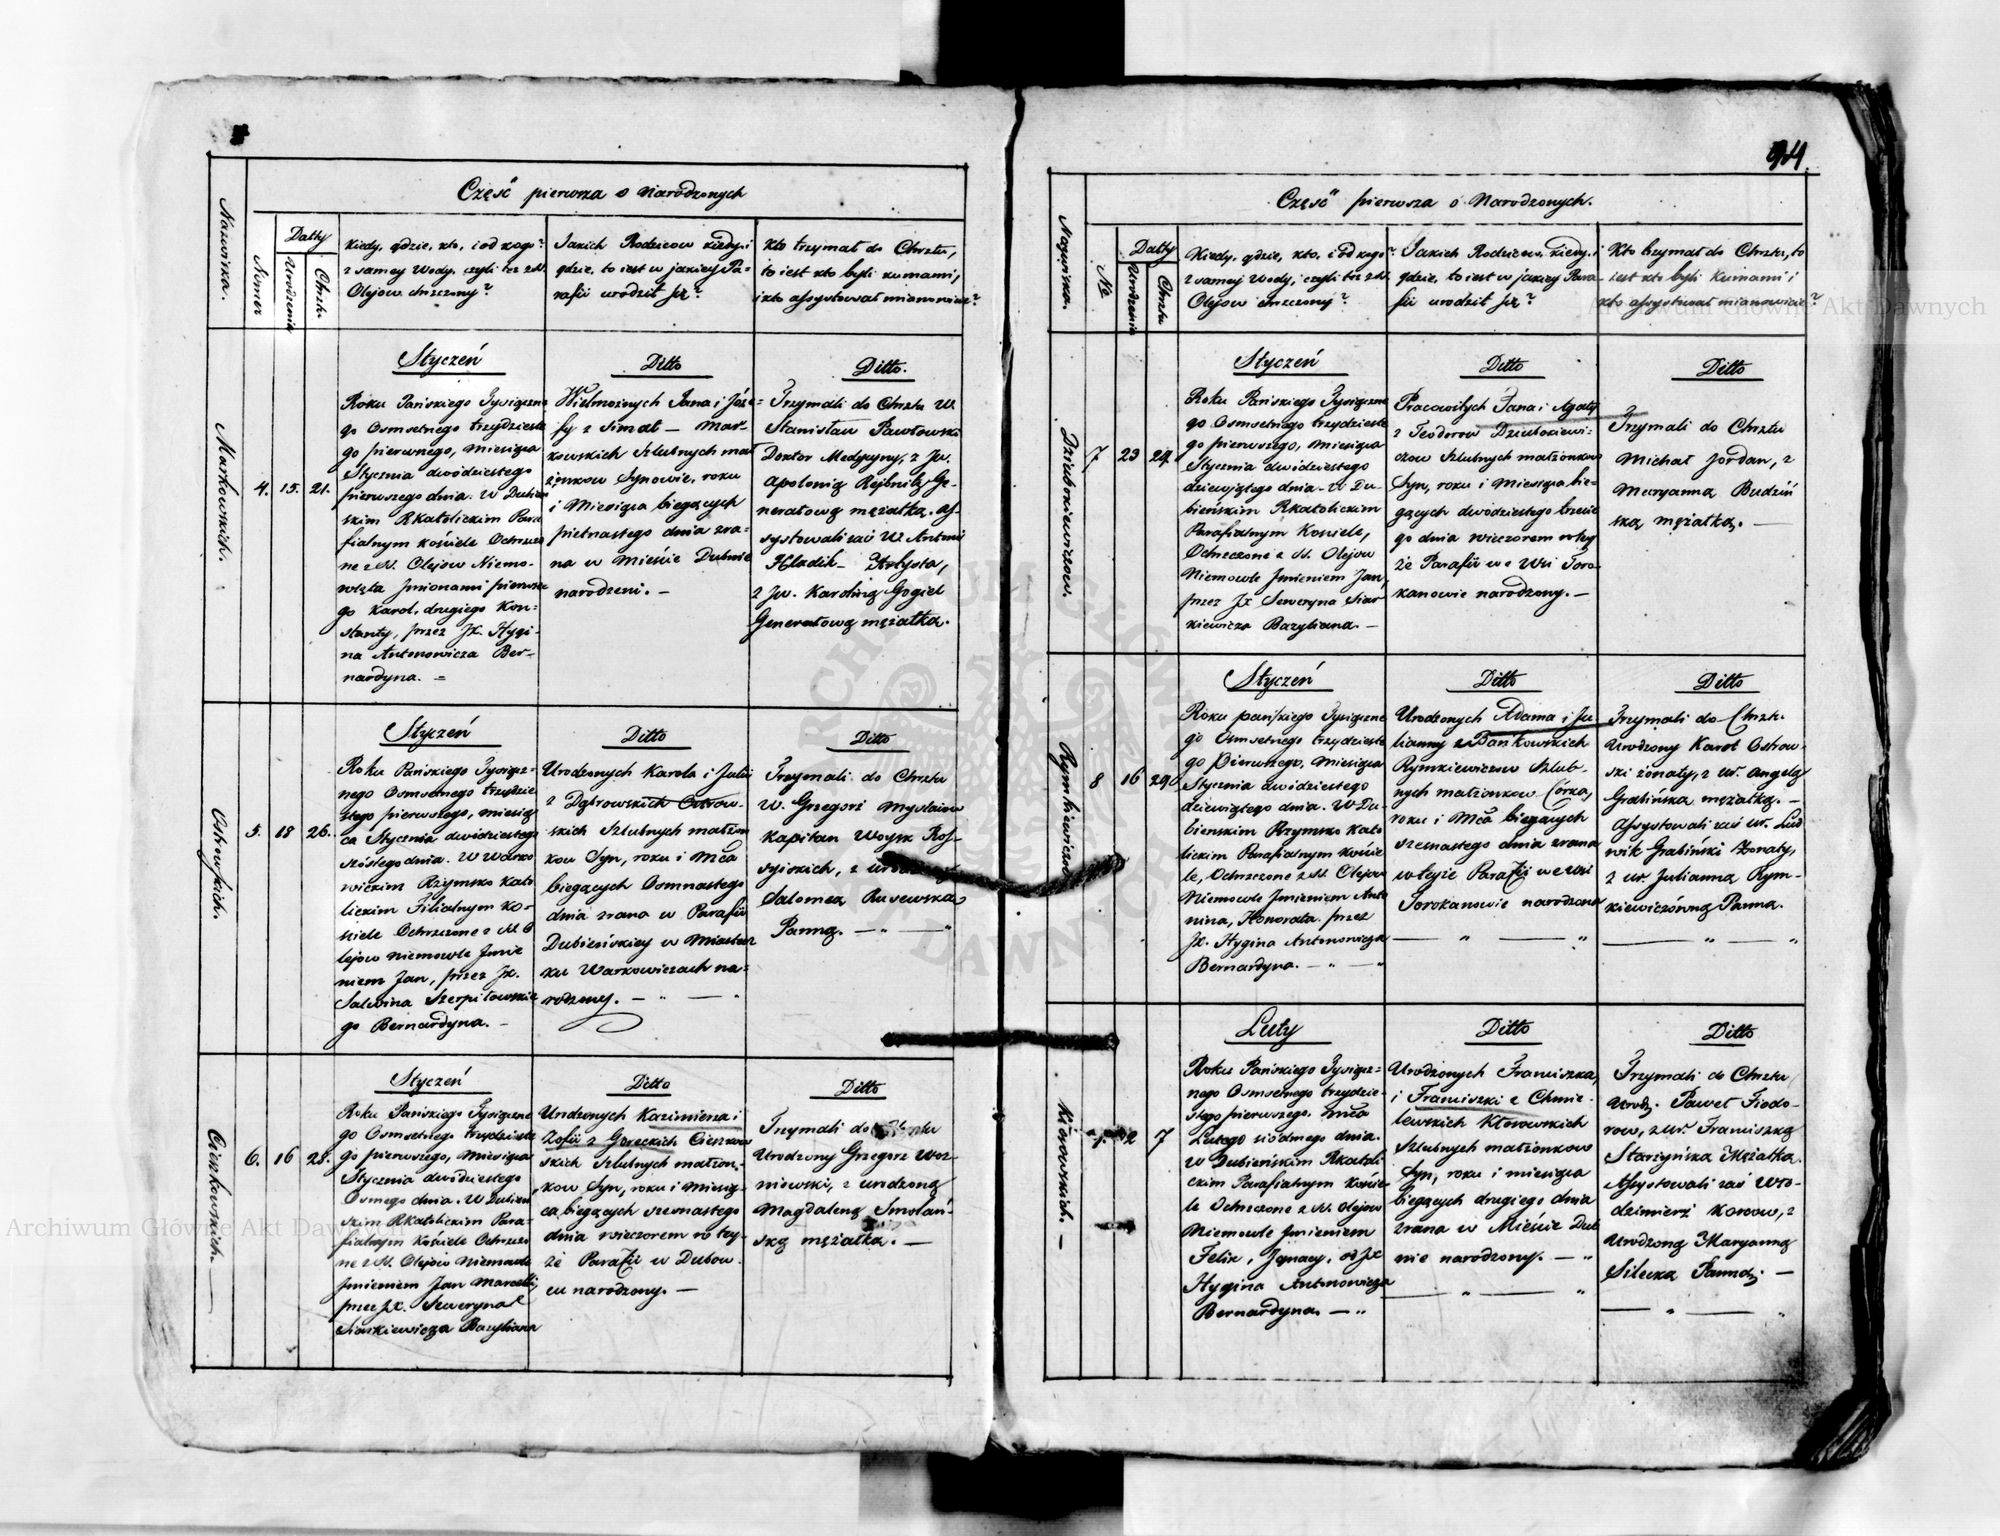 94
Część pierwsza o Narodzonych
Nazwiska.
Numer
Datty
Urodzenia
Chrztu
Kiedy, gdzie, kto, i od kogo?
z samey Wody, czyli też z SS.
Olejow chrzczony?
Jakich Rodzicow kiedy i
gdzie, to iest w jakiey Pa=
rafii urodził się?
Kto trzymał do Chrztu,
to iest kto byli kumami,
i kto assystował mianowicie?
Markowskich.
4. 15. 21.
Styczeń
Roku Pańskiego Tysiączne
go Osmsetnego trzydzieste
go pierwszego, miesiąca
Stycznia dwódziestego
pierwszego dnia. W Dubień
skim RKatolickim Para
fialnym kościele Ochrzczo
ne z SS. Olejow Niemo-
wlęta Jmionami pierwsze
go Karol, drugiego Kon=
stanty, przez Jx. Hygi-
na Antonowicza Ber-
nardyna. =
Ditto
Wielmożnych Jana i Józe=
fy z Simat — Mar-
kowskich Szlubnych mał
żonkow Synowie, roku
i Miesiąca bieżących
pietnastego dnia zra=
na w Mieście Dubnie
narodzeni. —
Ditto.
Trzymali do Chrztu W.
Stanisław Pawłowski
Doktor Medycyny, z Jw.
Apolonią Rejbnitz Ge-
nerałową mężatką. As-
systowali zaś W Antoni
Hladik —
z Jw. Karoliną Gogiel
Generałową mężatką.
Ostrowskich.
5. 18 26.
Styczeń
Roku Pańskiego Tysiącz-
nego Osmsetnego trzydzie
stego pierwszego, miesią
ca Stycznia dwódziestego
szóstego dnia. W Warko
wickim Rzymsko Kato
lickim Filialnym Ko-
ściele Ochrzczone z SS O
lejow niemowle Jmie
niem Jan, przez Jx.
Salwina Szerpiłowskie
go Bernardyna. —
Ditto
Urodzonych Karola i Julii
z Dąbrowskich Ostrow-
skich Szlubnych małżon
kow Syn, roku i Mca
bieżących Osmnastego
dnia zrana w Parafii
Dubieńskiey w Miastecz
ku Warkowiczach na=
rodzony. — " — "
Ditto
Trzymali do Chrztu
W. Grzegorz Mysłaiow
Kapitan Woysk Ros-
syiskich, z
Salomeą Rusewską
Panną. — " — "
Cieszkowskich.
6. 16 28.
Styczeń
Roku Pańskiego Tysiączne
go Osmsetnego trzydzieste
go pierwszego, miesiąca
Stycznia dwódziestego
Osmego dnia. W Dubień
skim RKatolickim Para-
fialnym Kościele Ochrzczo
ne z SS. Olejow niemowle
Jmieniem Jan Marcelli,
przez Jx. Seweryna
Siarkiewicza Bazyliana
Ditto
Urodzonych Kazimierza i
Zofii z Goreckich Cieszkow
skich Szlubnych małżon-
kow Syn, roku i Miesią-
ca bieżących szesnastego
dnia wieczorem w tey-
że Parafii w Dubow
cu narodzony. —
Ditto
Trzymali do Chrztu
Urodzony Grzegorz Woz-
niowski, z urodzoną
Magdaleną Smolań-
ską mężatką. —
Część pierwsza o Narodzonych.
Nazwiska.
No
Datty
Urodzenia
Chrztu
Kiedy, gdzie, kto, i od kogo?
z samey Wody, czyli też z SS.
Olejow chrzczony?
Jakich Rodzicow, kiedy i
gdzie, to iest w jakiey Para
fii urodził się?
Kto trzymał do Chrztu, to
iest kto byli Kumami i
kto assystował mianowicie?
Dziubkiewiczow.
7 23 29
Styczeń
Roku Pańskiego Tysiączne
go Osmsetnego trzydzieste
go pierwszego, miesiąca
Stycznia dwódziestego
dziewiątego dnia. W Du-
bieńskim RKatolickim
Parafialnym Kościele,
Ochrzczone z SS. Olejow
Niemowle Jmieniem Jan,
przez Jx Seweryna Siar
kiewicza Bazyliana. —
Ditto
Pracowitych Jana i Agaty
z Teodorow Dziubkiewi-
czow Szlubnych małżonkow
Syn, roku i Miesiąca bie-
żących dwódziestego trzecie
go dnia wieczorem w tey
że Parafii we Wsi Soro-
kanowie narodzony. —
Ditto
Trzymali do Chrztu
Michał Jordan, z
Maryanną Budziń
ską mężatką. —
Rymkiewiczow
8 16 29
Styczeń
Roku pańskiego Tysiączne
go Osmsetnego trzydzieste
go Pierwszego, miesiąca
Stycznia dwódziestego
dziewiątego dnia. W Du-
bienskim Rzymsko Kato
lickim Parafialnym Koście
le, Ochrzczone z SS. Olejow
Niemowle Jmieniem Anto
nina, Honorata. przez
Jx. Hygina Antonowicza
Bernardyna. — " — "
Ditto
Urodzonych Adama i Ju
lianny z Bańkowskich
Rymkiewiczow Szlub-
nych małżonkow Córka,
roku i Mca bieżących
szesnastego dnia zrana
w teyże Parafii we Wsi
Sorokanowie narodzona
— " — "
Ditto
Trzymali do Chrztu
Urodzony Karol Ostrow-
ski żonaty, z Ur. Angelą
Grabińską mężatką. —
Assystowali zaś Ur. Lud
wik Grabiński żonaty,
z Ur. Julianną Rym-
kiewiczówną Panną.
— " — "
Kłosowskich. —
2 7
Luty
Roku Pańskiego Tysiącz=
nego Osmsetnego trzydzie-
stego pierwszego. Mca
Lutego siódmego dnia.
W Dubieńskim RKatoli-
ckim Parafialnym Koście-
le Ochrzczone z SS. Olejow
Niemowle Jmieniem
Felix, Jgnacy, od Jx
Hygina Antonowicza
Bernardyna. — "
Ditto
Urodzonych Franciszka,
i Franciszki z Chmie-
lewskich Kłosowskich
Szlubnych małżonkow
Syn, roku i miesiąca
bieżących drugiego dnia
zrana w Mieście Dub
nie narodzony. — "
— " — "
Ditto
Trzymali do Chrztu,
Urodz. Paweł Fiodo-
row, z Ur. Franciszką
Starzyńską Mężatką.
Assystowali zaś Wło-
dzimierz Korow, z
Urodzoną Maryanną
Silecką Panną. —
— " — "
Archiwum Główne Akt Dawnych
Archiwum Główne Akt Dawnych
ARCHIWUM GŁÓWNE AKT DAWNYCH